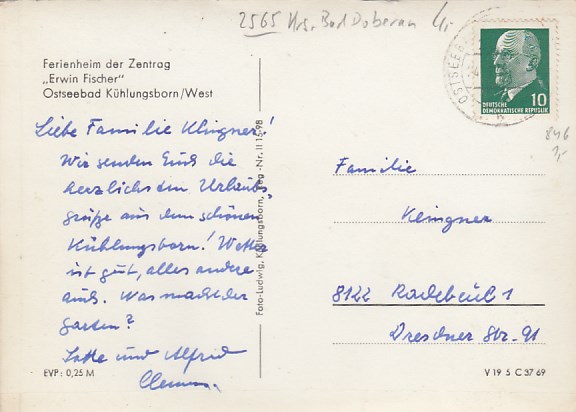 2565 Krs. Bad Doberan 4,-
Ferienheim der Zentrag
„Erwin Fischer"
Ostseebad Kühlungsborn/West
OSTSEEB
DEUTSCHE
DEMOKRATISCHE REPUBLIK
10
846
1,-
Liebe Familie Klingner!
Wir senden Euch die
herzlichsten Urlaubs
grüße aus dem schönen
Kühlungsborn! Wetter
ist gut, alles andere
auch. Was macht der
Garten?
Lotte und Alfred
Foto-Ludwig, Kühlungsborn, Reg.-Nr. II 15-98
Familie
Klingner
8122 Radebeul 1
Dresdner Str. 91
EVP: 0,25 M
V 19 5 C 37 69